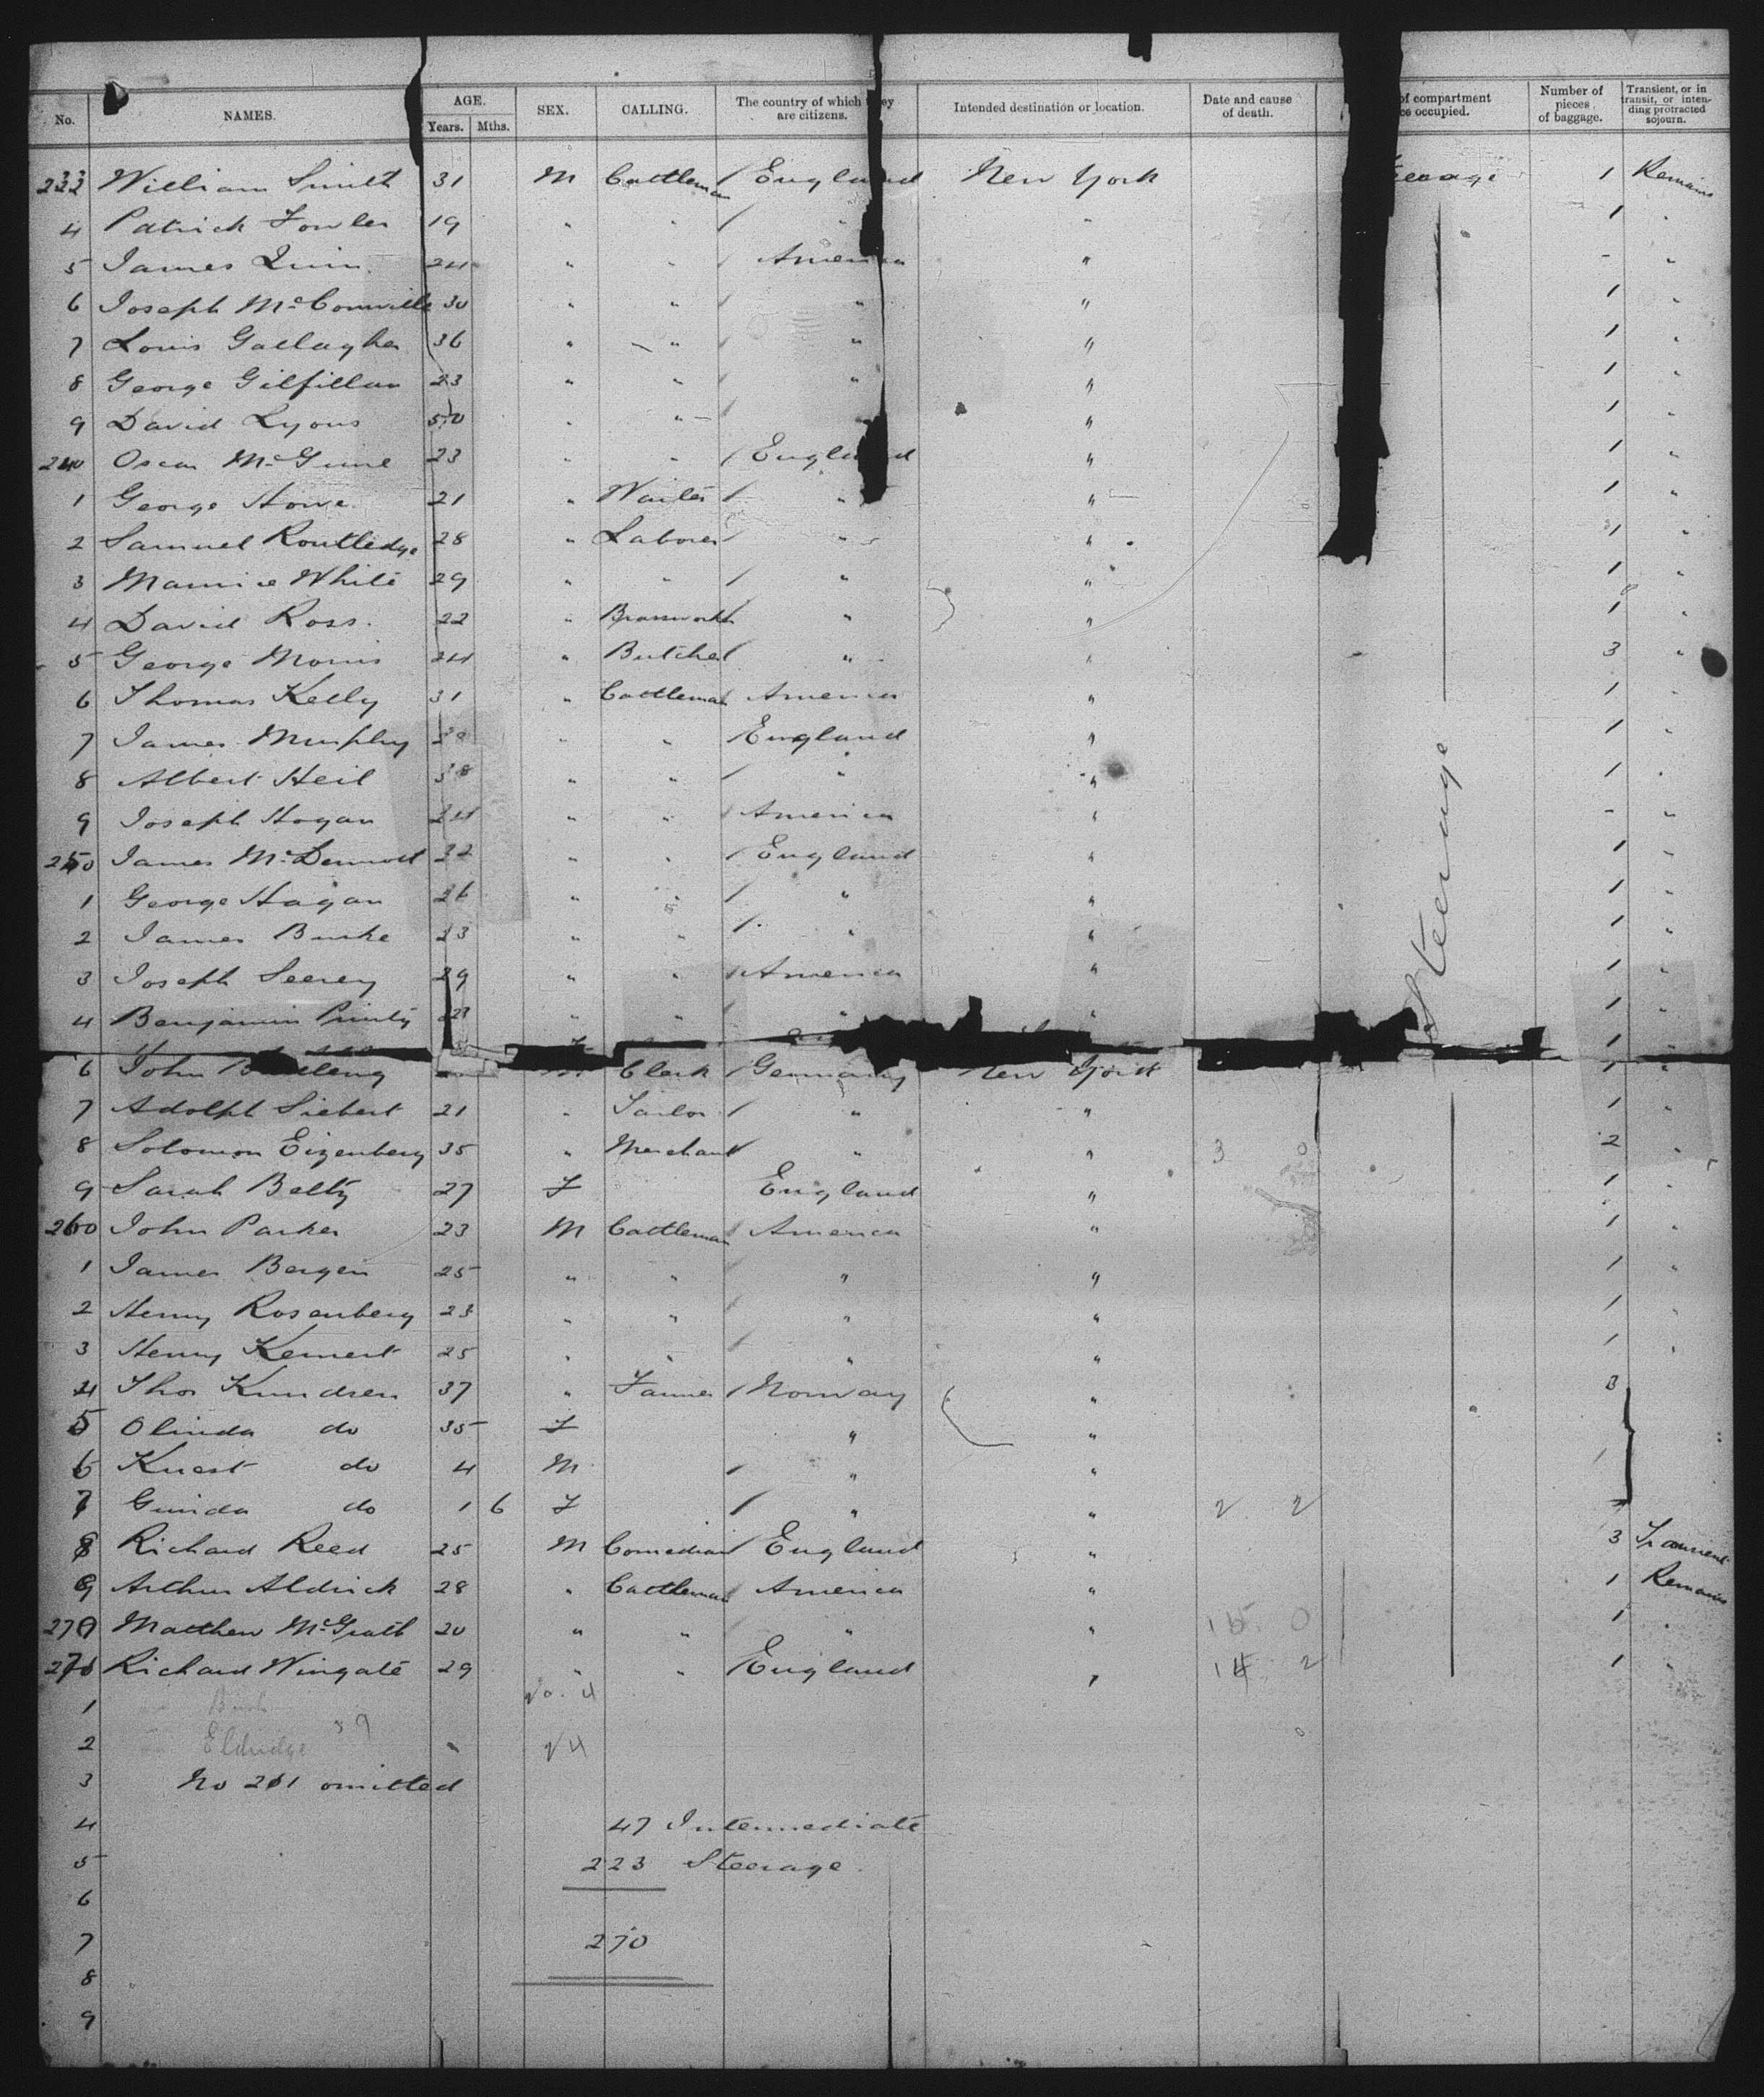 No. NAMES. AGE. Years. Mths. SEX. CALLING. The country of which they are citizens. Intended destination or location. Date and cause of death. of compartment occupied. Number of pieces of baggage. Transient, or in transit, or intending protracted sojourn.
William Smith 31 M Cattleman England New York 1 Remains
4 Patrick Fowler 19 " " " " 1 "
5 James Quin 24 " " America " - "
6 Joseph McConville 30 " " " " 1 "
7 Louis Gallagher 36 " " " " 1 "
8 George Gilfillan 23 " " " " 1 "
9 David Lyons 50 " " " " 1 "
240 Oscar 23 " " England " 1 "
1 George Howe 21 " Waiter " " 1 "
2 Samuel Routledge 28 " Laborer " " 1 "
3 Maurice White 29 " " " " 1 "
4 David Ross 22 " " " 1 "
5 George Morris 24 " Butcher " " 3 "
6 Thomas Kelly 31 " Cattleman America " 1 "
7 James Murphy " " England " 1 "
8 Albert Heil 38 " " " " 1 "
9 Joseph Hogan 24 " " America " - "
250 James McDermott 32 " " England " 1 "
1 George Hagan 26 " " " " 1 "
2 James Burke 23 " " " " 1 "
3 Joseph Seerey 29 " " America " 1 "
4 Benjamin " " " " 1 "
Steerage
6 John Clerk Germany New York 1 "
7 Adolph Siebert 21 " Tailor " " 1 "
8 Solomon Eizenberg 35 " Merchant " " 3 0 2 "
9 Sarah Belty 27 F England " 1 "
260 John Parker 23 M Cattleman America " 1 "
1 James Bergen 25 " " " " 1 "
2 Henry Rosenberg 23 " " " " 1 "
3 Henry Kement 25 " " " " 1 "
4 Thos Knudsen 37 " Farmer Norway " 3
5 Olinda do 35 F " "
6 Knest do 4 M " "
7 Gunda do 1 6 F " " 2 2
8 Richard Reed 25 M Comedian England " 3 Transient
9 Arthur Aldrick 28 " Cattleman America " 1 Remains
270 Matthew McGrath 20 " " " " 1 "
Richard Wingate 29 " " England " 1 "
1
2 Eldridge
3 No 261 omitted
4 47 Intermediate
5 223 Steerage
6
7 270
8
9